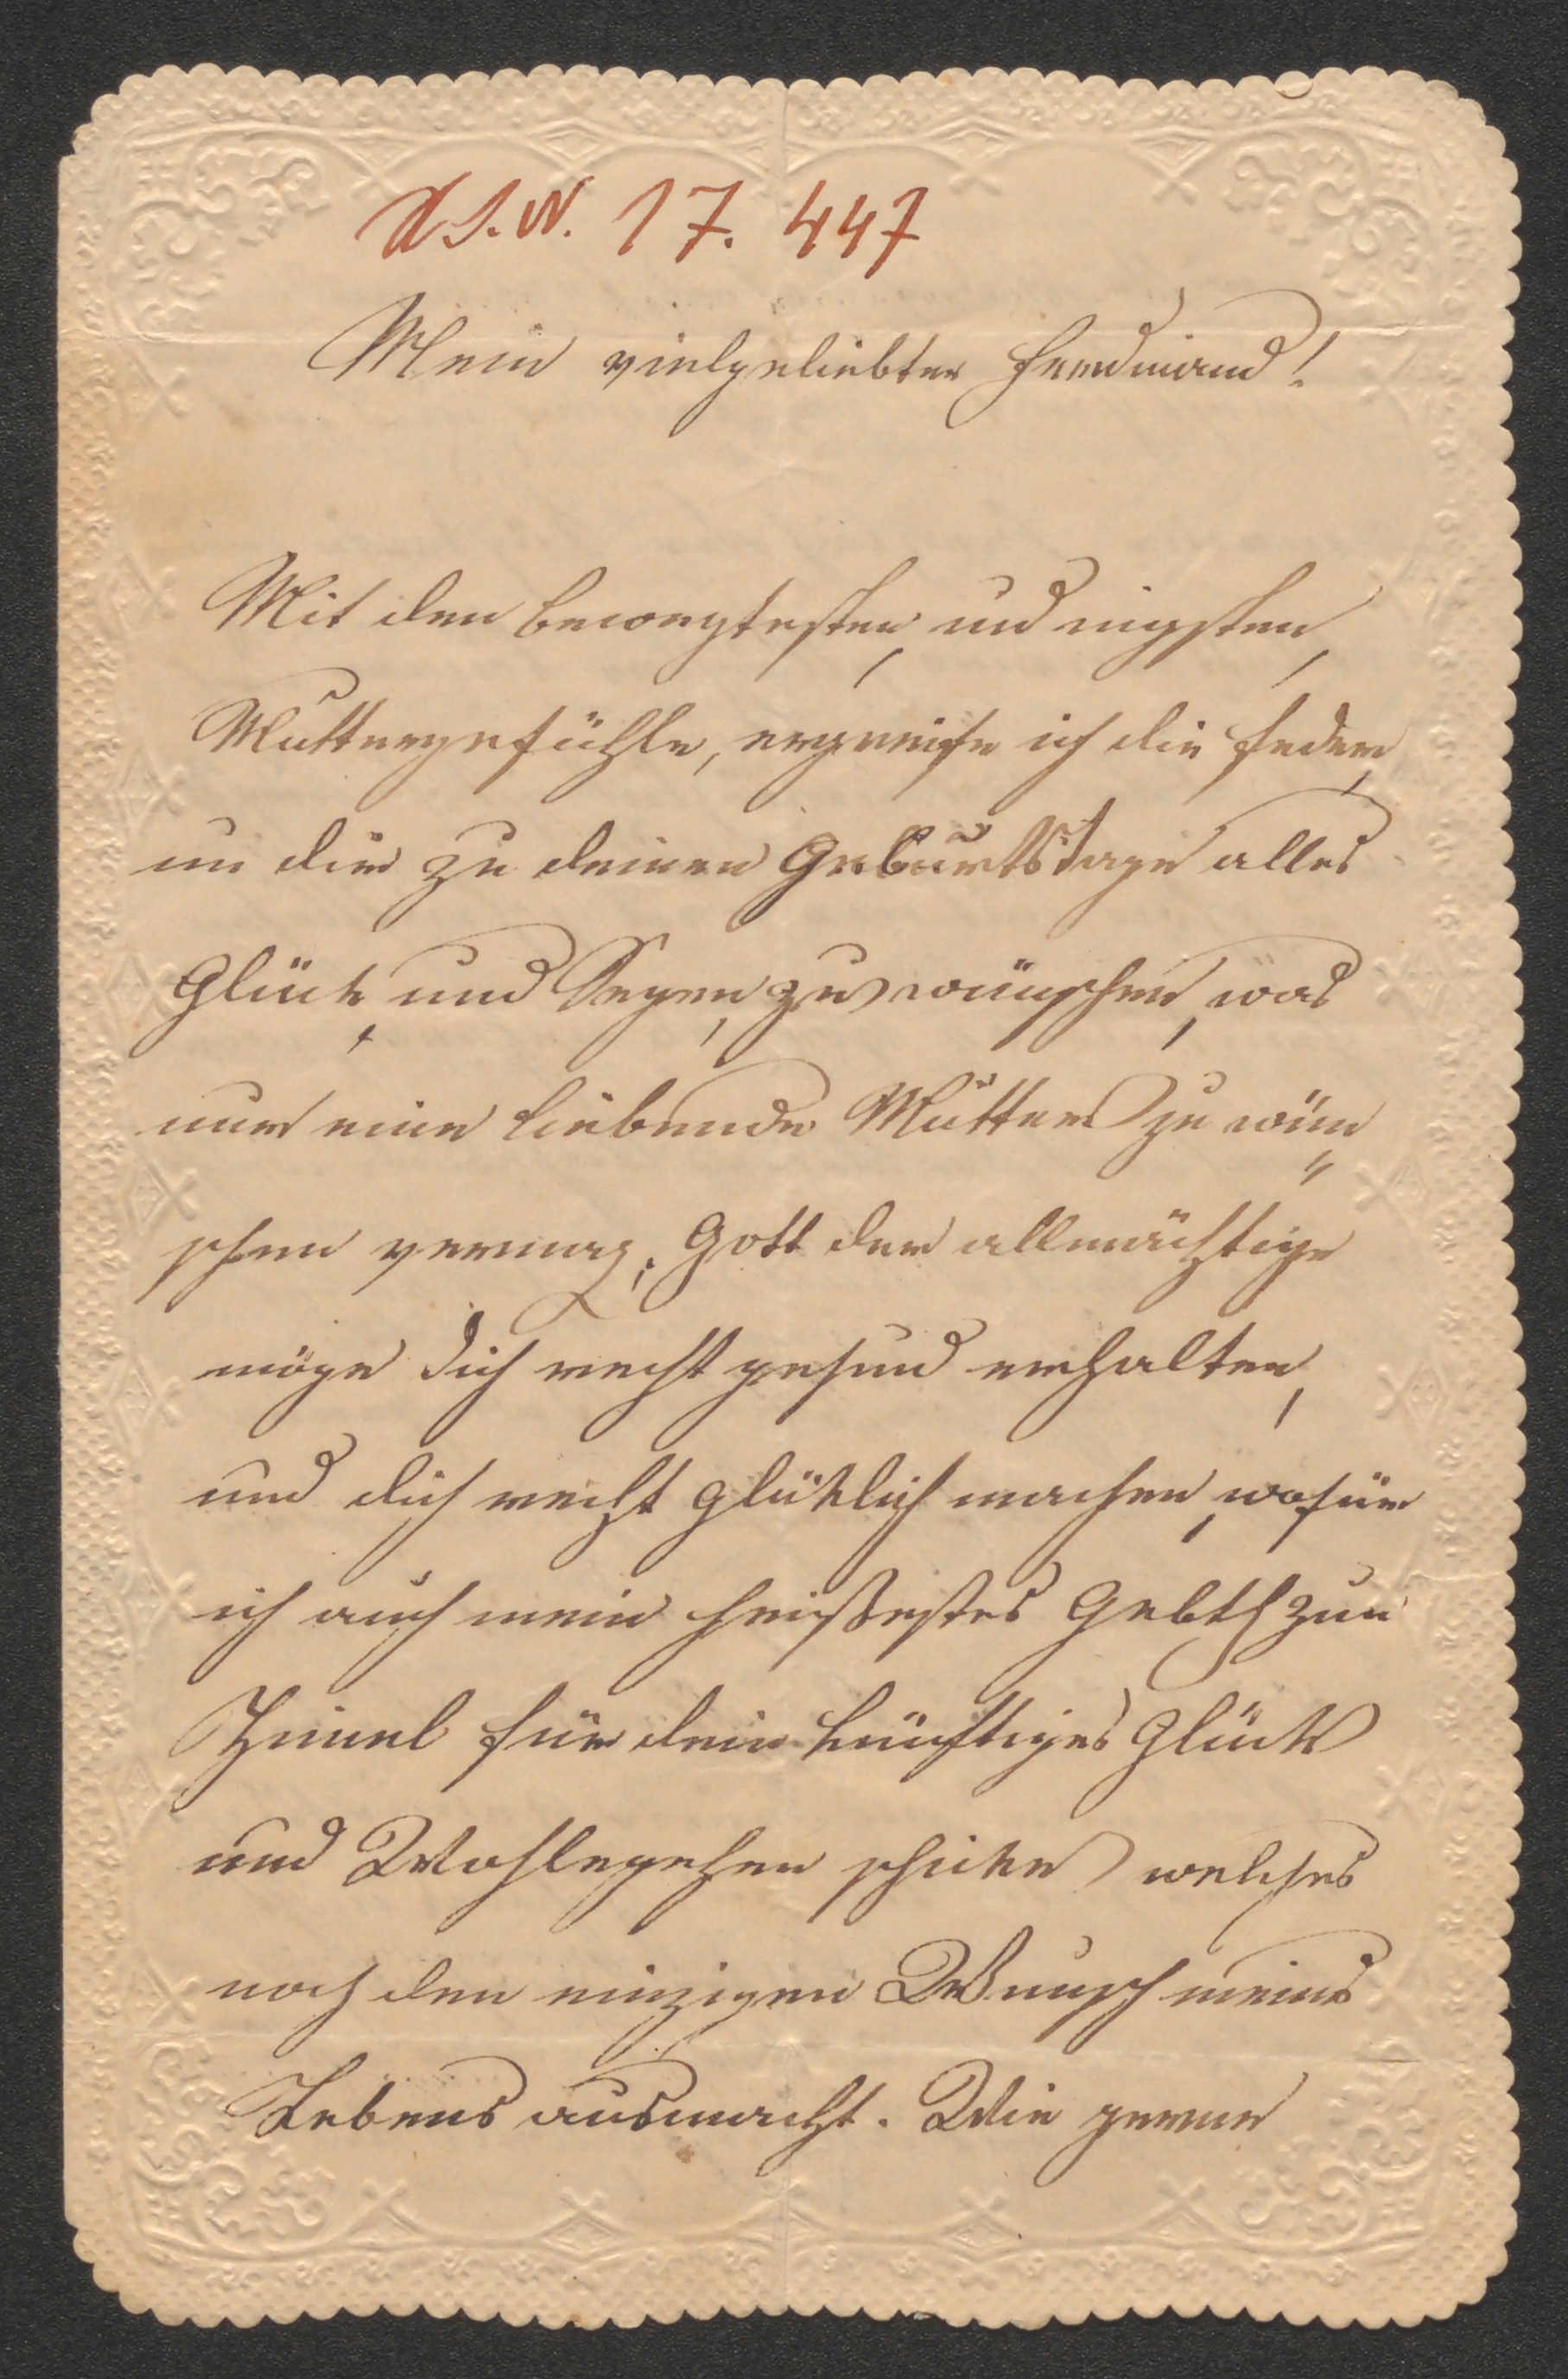 A.S.N. 17.447
Mein vielgeliebter Ferdinand!
Mit den bewegtesten, und
Muttergefühle, ergreife ich die Feder,
um dir zu deinen Geburtstage alles
Glück, und Segen, zu wünschen, was
nur eine liebende Mutter zu wün„
schen vermag, Gott der allmächtige
möge dich recht gesund erhalten,
und dich recht glüklich machen, wofür
ich auch mein heißestes Gebth zum
Himel für dein künftiges Glück
und Wohlergehen schike welches
noch den einzigen Wunsch meines
Lebens ausmacht. Wie gerne